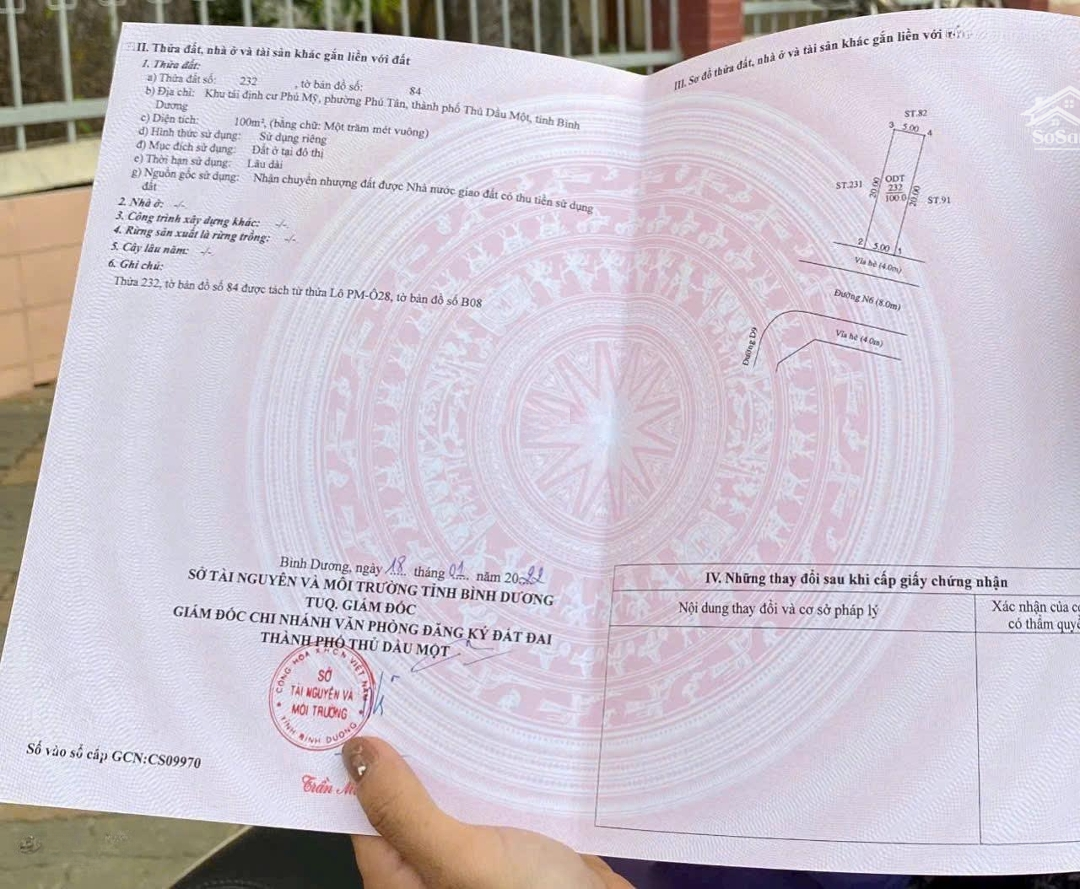 II. Thửa đất, nhà ở và tài sản khác gắn liền với đất
1. Thửa đất:
a) Thửa đất số: 232 , tờ bản đồ số: 84
b) Địa chỉ: Khu tái định cư Phú Mỹ, phường Phú Tân, thành phố Thủ Dầu Một, tỉnh Bình
Dương
c) Diện tích: 100m², (bằng chữ: Một trăm mét vuông)
d) Hình thức sử dụng: Sử dụng riêng
đ) Mục đích sử dụng: Đất ở tại đô thị
e) Thời hạn sử dụng: Lâu dài
g) Nguồn gốc sử dụng: Nhận chuyển nhượng đất được Nhà nước giao đất có thu tiền sử dụng
đất
2. Nhà ở: -/-
3. Công trình xây dựng khác: -/-
4. Rừng sản xuất là rừng trồng: -/-
5. Cây lâu năm: -/-
6. Ghi chú:
Thửa 232, tờ bản đồ số 84 được tách từ thửa Lô PM-Ô28, tờ bản đồ số B08
Bình Dương, ngày 18 tháng 01 năm 2022
SỞ TÀI NGUYÊN VÀ MÔI TRƯỜNG TỈNH BÌNH DƯƠNG
TUQ. GIÁM ĐỐC
GIÁM ĐỐC CHI NHÁNH VĂN PHÒNG ĐĂNG KÝ ĐẤT ĐAI
THÀNH PHỐ THỦ DẦU MỘT
CỘNG HÒA X.H.C.N VIỆT NAM
SỞ
TÀI NGUYÊN VÀ
MÔI TRƯỜNG
TỈNH BÌNH DƯƠNG
Trần
Số vào sổ cấp GCN:CS09970
III. Sơ đồ thửa đất, nhà ở và tài sản khác gắn liền với
ST.82
3 5.00 4
ST.231
20.00
ODT
232
100.0
20.00
ST.91
2 5.00 1
Vỉa hè (4.0m)
Đường N6 (8.0m)
Vỉa hè (4.0m)
Đường D9
IV. Những thay đổi sau khi cấp giấy chứng nhận
Nội dung thay đổi và cơ sở pháp lý
Xác nhận của
có thẩm